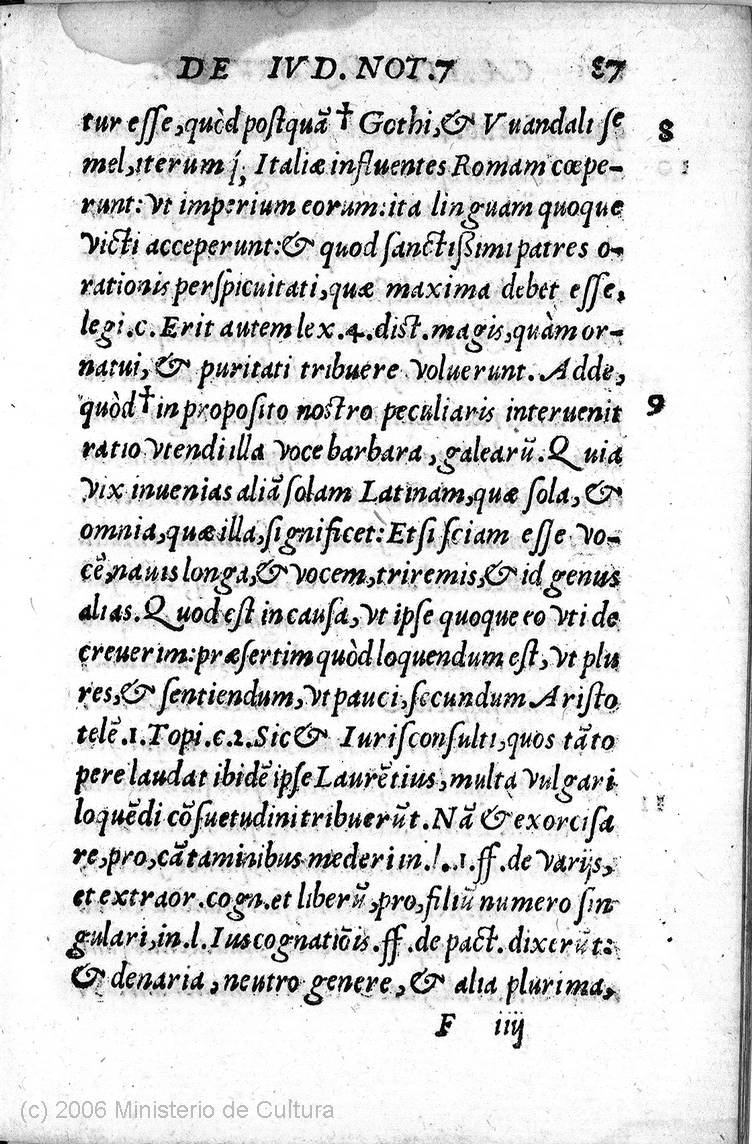 DE IVD. NOT. 7 87
tur esse, quòd postquã † Gothi, & Vuandali se 8
mel, iterum q́; Italiæ influentes Romam cœpe-
runt: vt imperium eorum: ita linguam quoque
victi acceperunt: & quod sanctissimi patres o-
rationis perspicuitati, quæ maxima debet esse,
legi. c. Erit autem lex. 4. dist. magis, quàm or-
natui, & puritati tribuere voluerunt. Adde,
quòd † in proposito nostro peculiaris interuenit 9
ratio vtendi illa voce barbara, galearũ. Quia
vix inuenias aliã solam Latinam, quæ sola, &
omnia, quæ illa, significet: Etsi sciam esse vo-
cẽ, nauis longa, & vocem, triremis, & id genus
alias. Quod est in causa, vt ipse quoque eo vti de
creuerim: præsertim quòd loquendum est, vt plu
res, & sentiendum, vt pauci, secundum Aristo
telẽ. 1. Topi. c. 2. Sic & Iurisconsulti, quos tãto
pere laudat ibidẽ ipse Laurẽtius, multa vulgari
loquẽdi cõsuetudini tribuerũt. Nã & exorcisa
re, pro, cãtaminibus mederi in. l. 1. ff. de varijs,
et extraor. cogn. et liberũ, pro, filiũ numero sin
gulari, in. l. Ius cognatiõis. ff. de pact. dixerũt:
& denaria, neutro genere, & alia plurima,
F iiij
(c) 2006 Ministerio de Cultura